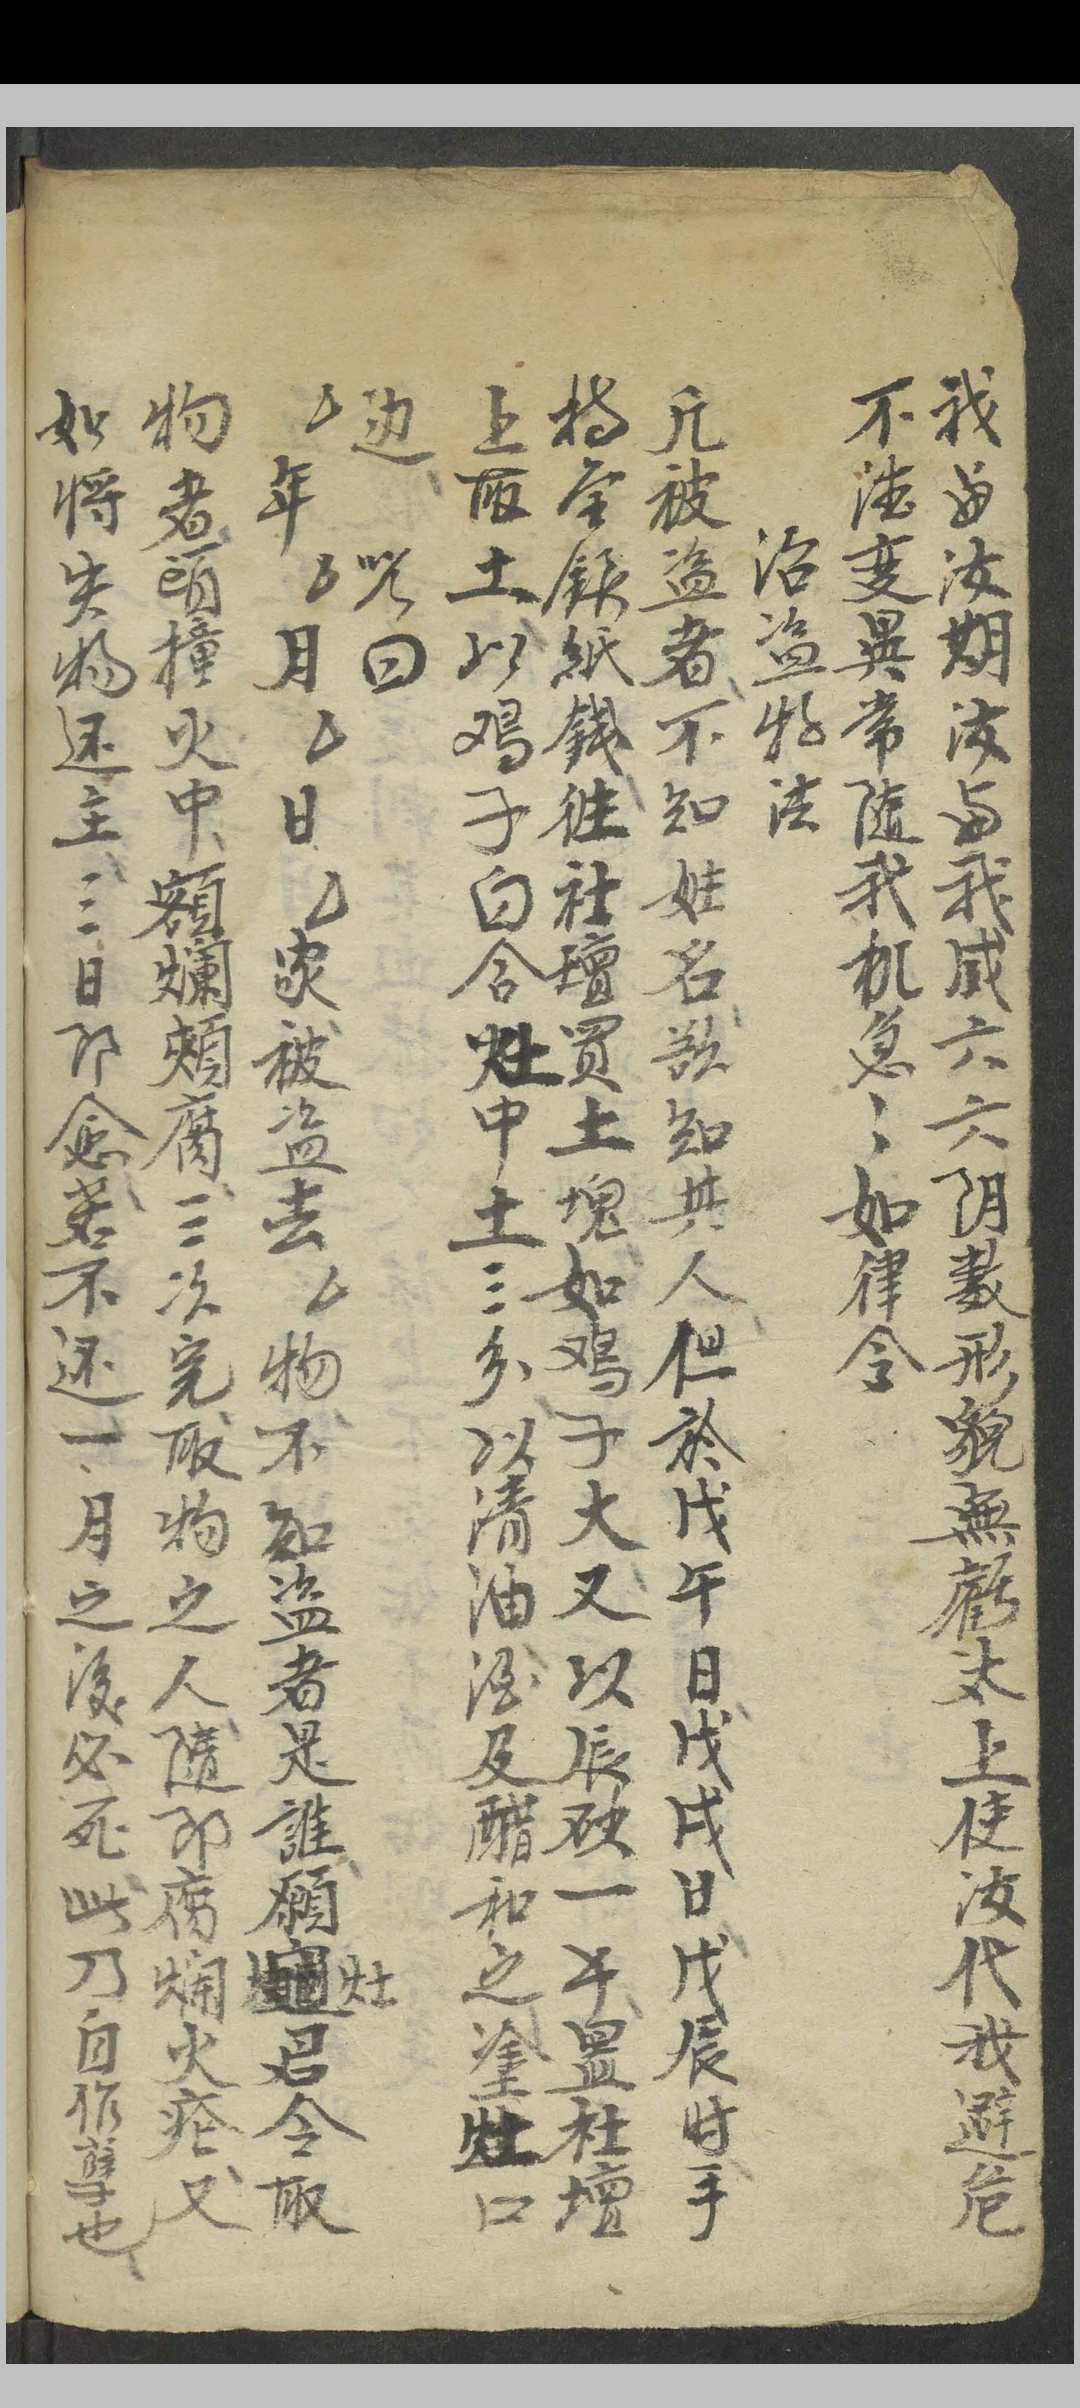 我与汝期汝与我咸六六阴数形貌無虧太上使汝代我避危
不法变異常隨我机急〻如律令
治盗物法
凡被盗者不知姓名欲知其人但於戊午日戊戌日戊辰时手
持金銀紙錢徃社壇買土塊如鸡子大又以辰砂一午置社壇
上取土以鸡子白合灶中土三分以清油酒及醋和之塗灶口
边咒曰
厶年厶月厶日厶家被盗去厶物不知盗者是誰願灶君令取
物者頭撞火中額爛頰腐三次完取物之人隨即腐爛火疮又
如将失物还主三日即愈若不还一月之後必死此乃自作孽也